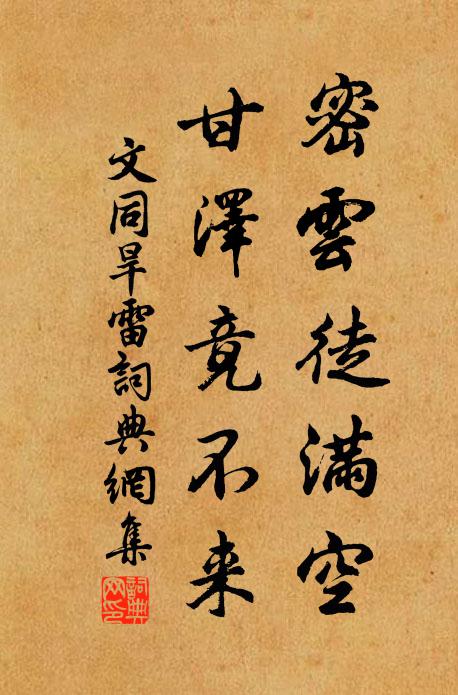 密雲徒滿空
甘澤竟不来
文同旱雷詞典網集
詞典網印